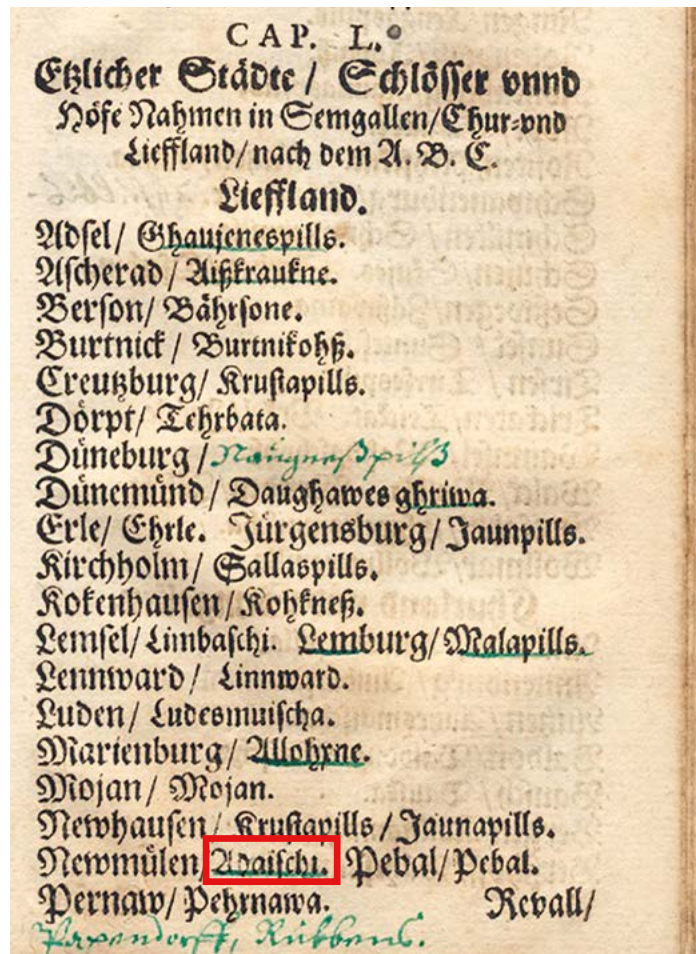 CAP. L.
Etzlicher Städte / Schlösser vnnd
Höfe Nahmen in Semgallen/Chur-vnd
Lieffland/ nach dem A. B. C.
Lieffland.
Adsel/ Ghaujenespills.
Ascherad / Aißkraukne.
Berson/ Bährsone.
Burtnick / Burtnikohß.
Creutzburg/ Krustapills.
Dörpt/ Tehrbata.
Düneburg / Naugneßpilß
Dünemünd / Daughawes ghriwa.
Erle/ Ehrle. Jürgensburg/ Jaunpills.
Kirchholm/ Sallaspills.
Kokenhausen/ Kohkneß.
Lemsel/ Limbaschi. Lemburg/ Malapills.
Lennward/ Linnward.
Luden/ Ludesmuischa.
Marienburg/ Allohxne.
Mojan/ Mojan.
Newhausen/ Krustapills / Jaunapills.
Newmülen/ Adaischi. Pebal/ Pebal.
Pernaw/ Pehrnawa. Revall/
Papendorff, Rubbens.